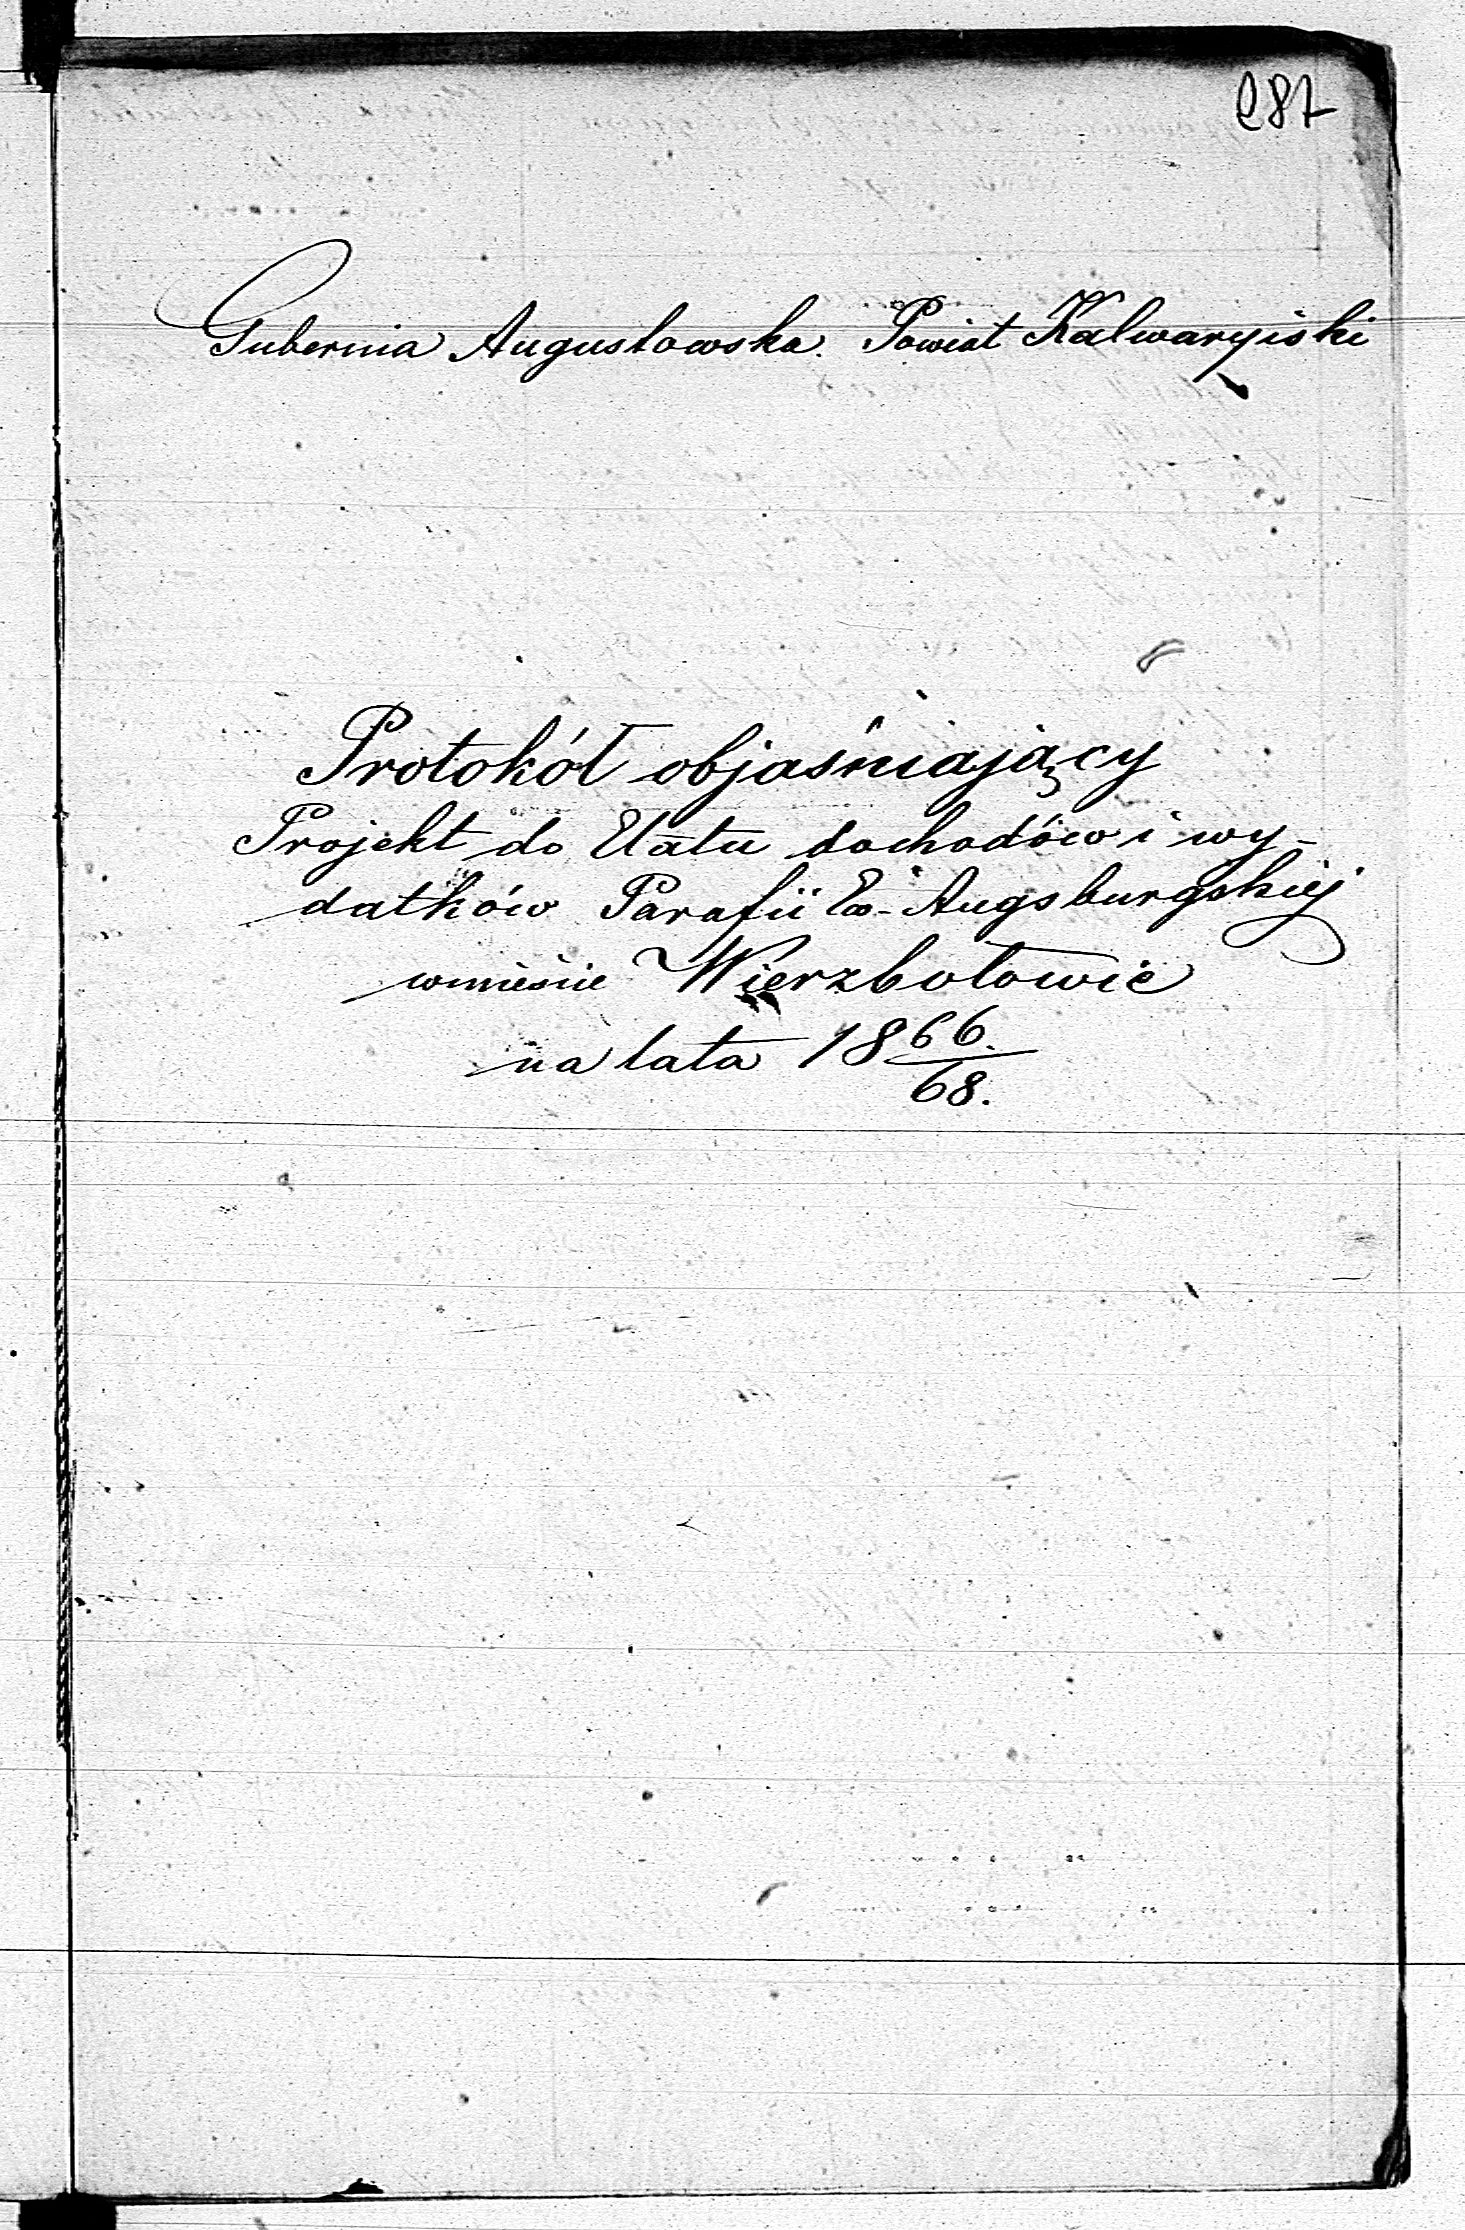 287
Gubernia Augustowska. Powiat Kalwaryiski
Protokół objaśniający
Projekt do Etatu dochodów i wy-
datków Parafii Ew-Augsburgskiej
w mieście Wierzbołowie
na lata 1866/68.